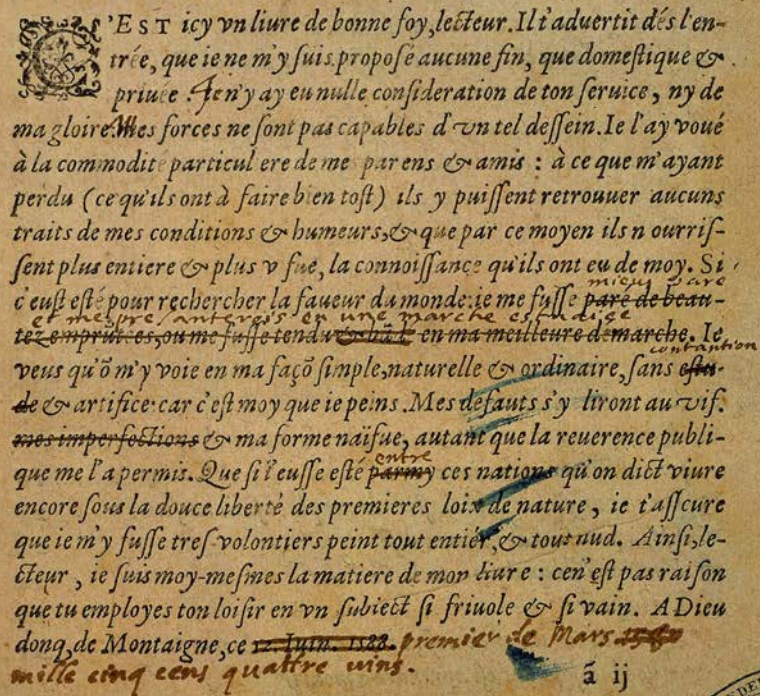 C'EST icy vn liure de bonne foy, lecteur. Il t'aduertit dés l'en-
trée, que ie ne m'y suis proposé aucune fin, que domestique &
priuée. Ie n'y ay eu nulle consideration de ton seruice, ny de
ma gloire. Mes forces ne sont pas capables d'vn tel dessein. Ie l'ay voué
à la commodité particuliere de mes parens & amis : à ce que m'ayant
perdu (ce qu'ils ont à faire bien tost) ils y puissent retrouuer aucuns
traits de mes conditions & humeurs, & que par ce moyen ils nourris-
sent plus entiere & plus vifue, la connoissance qu'ils ont eu de moy. Si
mieus paré
c'eust esté pour rechercher la faueur du monde: ie me fusse paré de beau-
et me presanterois en une marche estudiee
tez empruntées, ou me fusse tendu & en ma meilleure démarche. Ie
contantion
veus qu'õ m'y voie en ma façõ simple, naturelle & ordinaire, sans estu-
de & artifice: car c'est moy que ie peins. Mes defauts s'y liront au vif.
mes imperfections & ma forme naïfue, autant que la reuerence publi-
entre
que me l'a permis. Que si i'eusse esté parmy ces nations qu'on dict viure
encore sous la douce liberté des premieres loix de nature, ie t'asseure
que ie m'y fusse tres-volontiers peint tout entier, & tout nud. Ainsi, le-
cteur, ie suis moy-mesmes la matiere de mon liure : ce n'est pas raison
que tu employes ton loisir en vn subiect si friuole & si vain. A Dieu
donq, de Montaigne, ce 12. Iuin. 1588. premier de Mars
mille cinq cens quattre vins.
ã ij